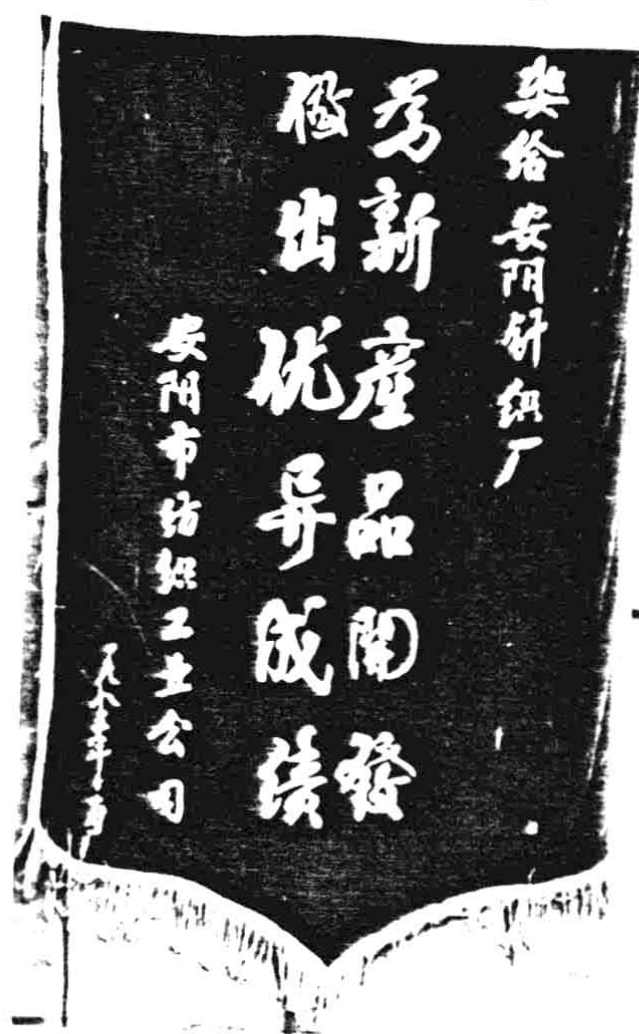 奖给安阳针织厂
为新產品開發
做出优异成绩
安阳市纺织工业公司
一九八五年